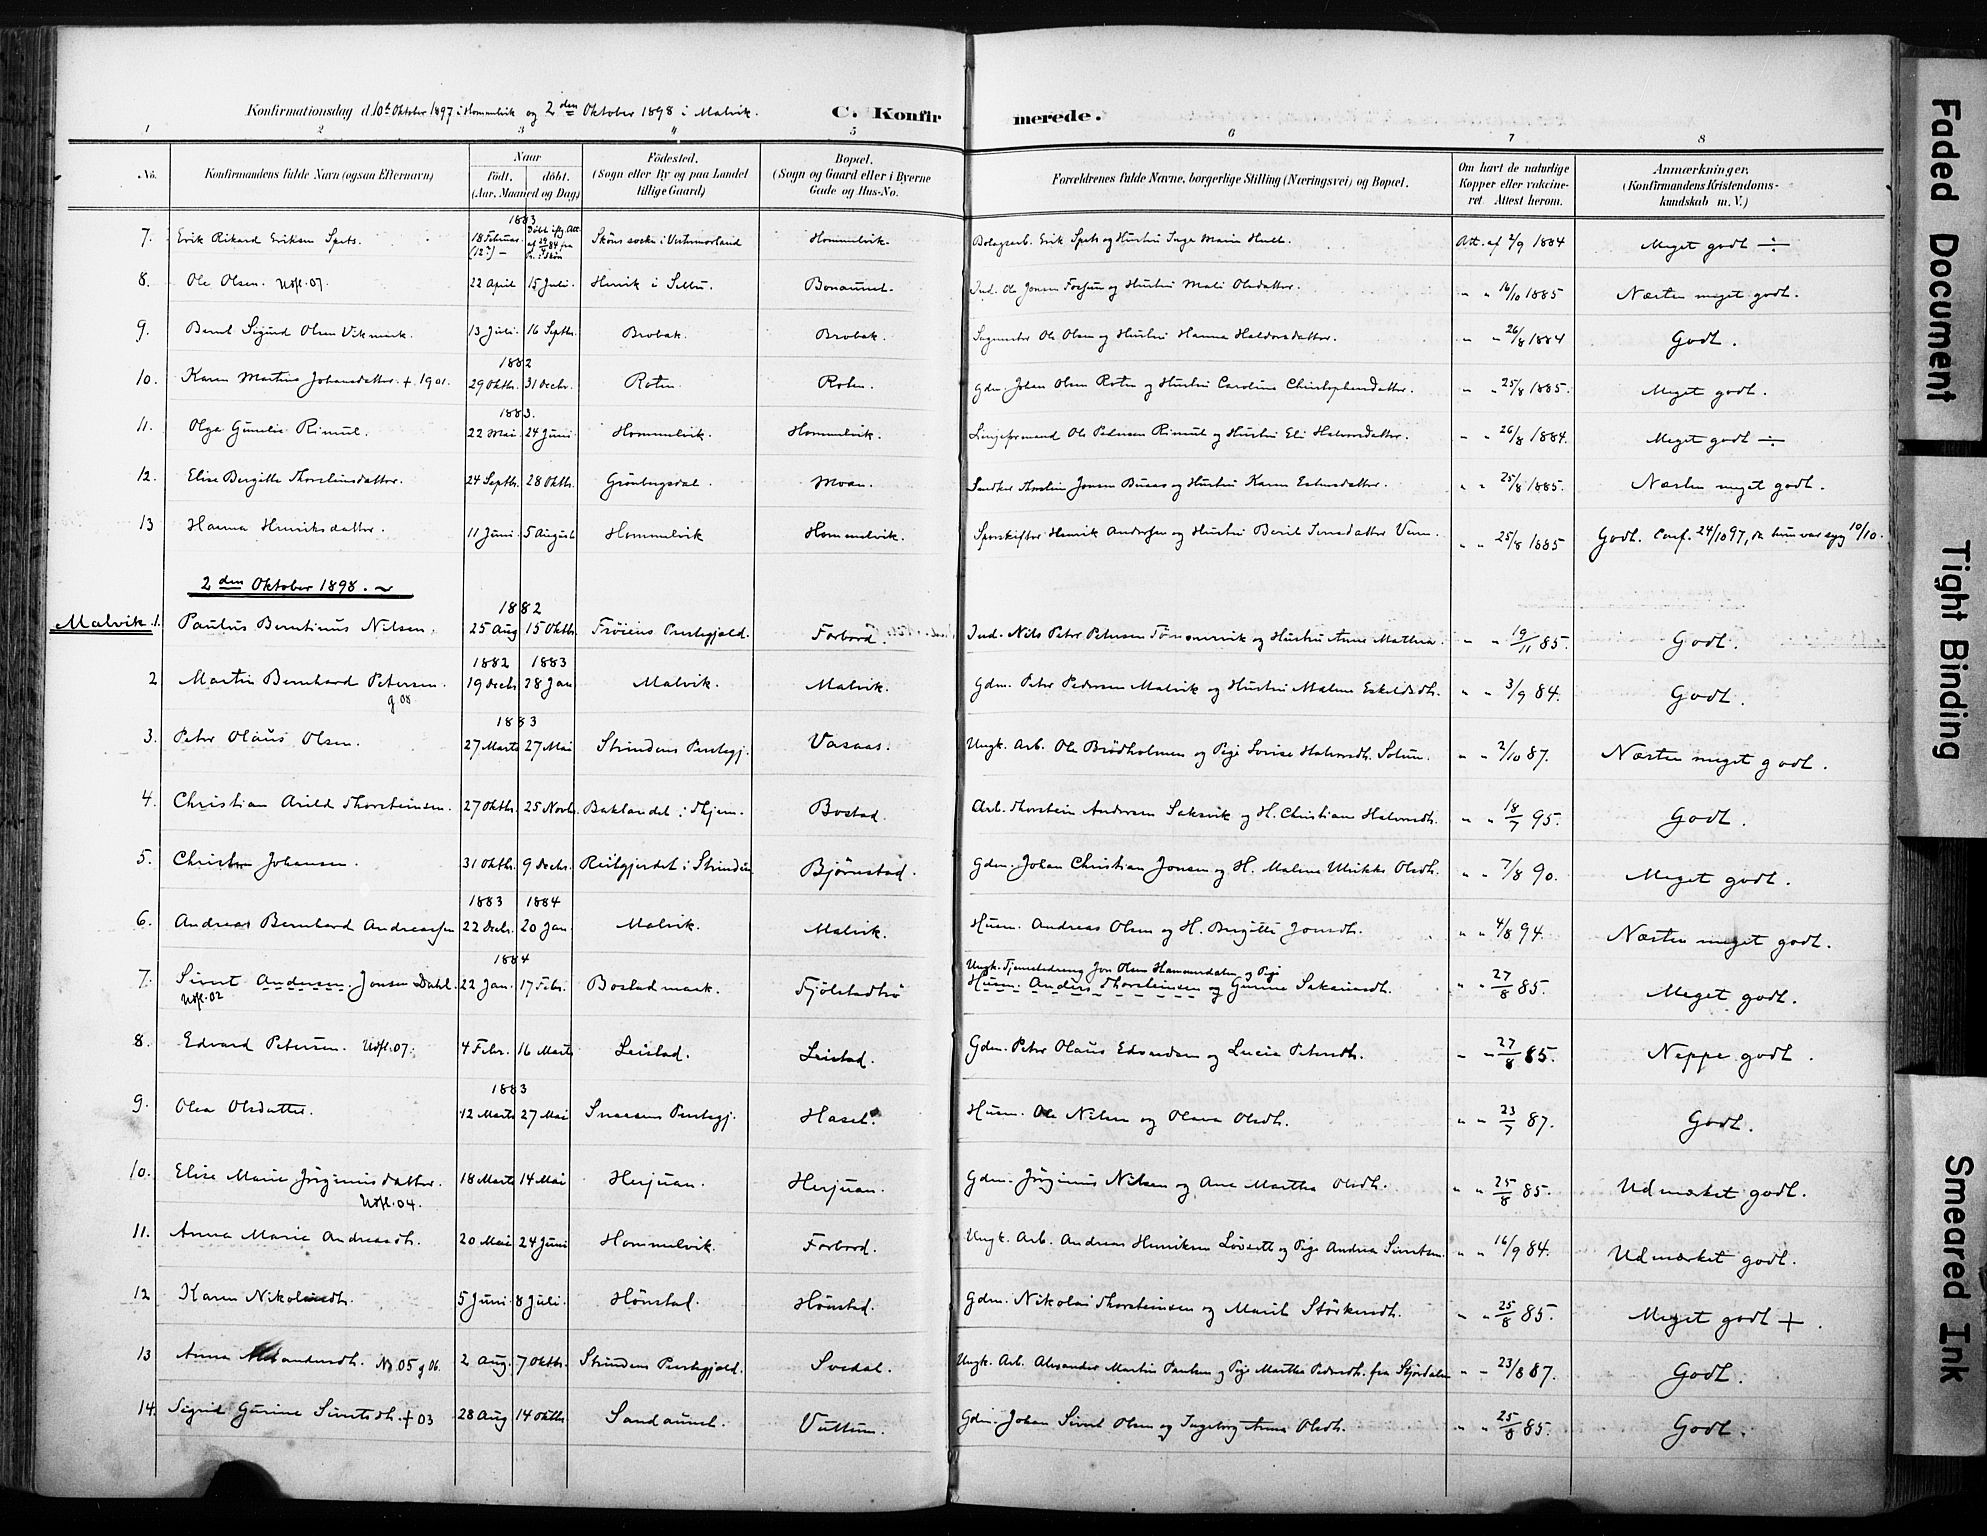 Konfirmationsdag d. 10de Oktober 1897 i Hommelvik og 2den Oktober 1898 i Malvik. C. Konfirmerede.
1 2 3 4 5 6 7 8
No. Konfirmandens fulde Navn (ogsaa Efternavn) Naar født. døbt. (Aar, Maaned og Dag) Fødested. (Sogn eller By og paa Landet tillige Gaard) Bopæl. (Sogn og Gaard eller i Byerne Gade og Hus-No. Forældrenes fulde Navne, borgerlige Stilling (Næringsvei) og Bopæl. Om havt de naturlige Kopper eller vakcineret. Attest herom. Anmærkninger, (Konfirmandens Kristendomskundskab m. V.)
1883
7. Erik Rikard Eriksen Spets. 18 Februar (12?) Hommelvik. Erik Spets og Hustru Inga Maria Att. af 2/9 1884 Meget godt ÷
8. Ole Olsen. Udfl. 07. 22 April 15 Juli. i Selbu. Bonaunet. Ind. Ole Jonsen og Hustru Mali Olsdatter. " " 16/10 1885 Næsten meget godt.
9. Bernt Sigurd Olsen Vikmark. 13 Juli. 16 Septbr. Brobak. Brobak. Sagmester Ole Olsen og Hustru Hanna Haldorsdatter. " " 26/8 1884 Godt.
1882
10. Karen Martine Johansdatter. + 1901. 29 Oktbr. 31 Decbr. Roten. Roten. Gdm. Johan Olsen Roten og Hustru Caroline Christophersdatter. " " 25/8 1885. Meget godt.
1883.
11. Olga Gunelie Rimul. 22 Mai 24 Juni Hommelvik. Hommelvik. Ole Pedersen Rimul og Hustru Eli Halvorsdatter. " " 26/8 1884. Meget godt ÷
12. Elise Bergitte Thorsteinsdatter. 24 Septbr. 28 Oktbr. Grønbergsdal. Moan. Thorstein Jonsen Buaas og Hustru Karen Estensdatter. " " 25/8 1885. Næsten meget godt.
13 Hanna Henriksdatter. 11 Juni. 5 August Hommelvik Hommelvik. Sporskifter Henrik Andersen og Hustru Berit " " 25/8 1885 Godt. Conf. 24/10 97, da hun var syg 10/10.
2den Oktober 1898.
1882
Malvik. 1. Paulus Berntinus Nilsen. 25 Aug 15 Oktbr. Frøiens Prestegjeld. Forbord. Ind. Nils Peter Petersen og Hustru Anne Mathea " " 19/11 85. Godt.
1882 1883
2 Martin Bernhard Petersen. g 08 19 Decbr. 28 Jan Malvik. Malvik. Gdm. Peter Pedersen Malvik og Hustru Malene Eskildsdtr. " " 3/9 84. Godt.
1883
3. Peter Olaus Olsen. 27 Marts 27 Mai Strindens Prestegj. Vasaas. Ungk. Arb. Ole Brødholmen og Pige Lovise Halvorsdtr. Solum. " " 2/10 87. Næsten meget godt.
4. Christian Arild Thorsteinsen. 27 Oktbr. 25 Novbr. Baklandet i Thjem. Bostad. Arb. Thorstein Andersen Saksvik og H. Christiane Halvorsdtr. " " 18/7 95. Godt.
5. Christen Johansen. 31 Oktbr. 9 Decbr. Reitgjerdet i Strinden Bjørnstad. Gdm. Johan Christian Jonsen og H. Malene Ulrikke Olsdtr. " " 7/8 90. Meget godt.
1883 1884
6. Andreas Bernhard Andreassen 22 Decbr. 20 Jan. Malvik. Malvik. Husm. Andreas Olsen og H. Birgitte Jonsdtr. " " 4/8 94. Næsten meget godt.
1884
Ungk. Tjenestedreng Jon Olsen Hammerdalen og Pige
7. Sivert Andersen Jonsen Dahl. 22 Jan. 17 Febr. Bostadmark. Fjølstadtrø Husm. Anders Thorsteinsen og Gurine Saksinsdtr. " " 27/8 85. Meget godt.
Udfl. 02
8. Edvard Petersen. Udfl. 07. 4 Febr. 16 Marts Leistad. Leistad. Gdm. Peter Olaus Edvardsen og Lucie Petersdtr. " " 27/8 85. Neppe godt.
1883
9. Olea Olsdatter. 12 Marts 27 Mai Snaasens Prestegj. Haset. Husm. Ole Nilsen og Olava Olsdtr. " " 23/7 87. Godt.
10. Elise Marie Jørginusdatter. 18 Marts 14 Mai Herjuan. Herjuan. Gdm. Jørginus Nilsen og Ane Martha Olsdtr. " " 25/8 85. Udmærket godt.
Udfl. 04.
11. Anna Marie Andreasdtr. 20 Mai 24 Juni Hommelvik. Forbord. Ungk. Arb. Andreas Henriksen Løvsett og Pige Andrea Sivertsen. " " 16/9 84. Udmærket godt.
12 Karen Nikolaisdtr. 5 Juni 8 Juli. Hønstad. Hønstad. Gdm. Nikolai Thorsteinsen og Marit Størkersdtr. " " 25/8 85. Meget godt +.
13 Anna Alexandersdtr. NB 05 g 06. 2 Aug. 7 Oktbr. Strindens Prestegjeld. Svedal. Ungk. Arb. Alexander Martin Paulsen og Pige Martha Pedersdtr. fra Stjørdalen " " 23/8 87. Godt.
14. Sigrid Gurine Sivertsdtr. + 03 28 Aug 14 Oktbr. Sandaunet. Vuttum. Gdm. Johan Sivert Olsen og Ingeborg Anna Olsdtr. " " 25/8 85. Godt.
Faded Document
Tight Binding
Smeared Ink